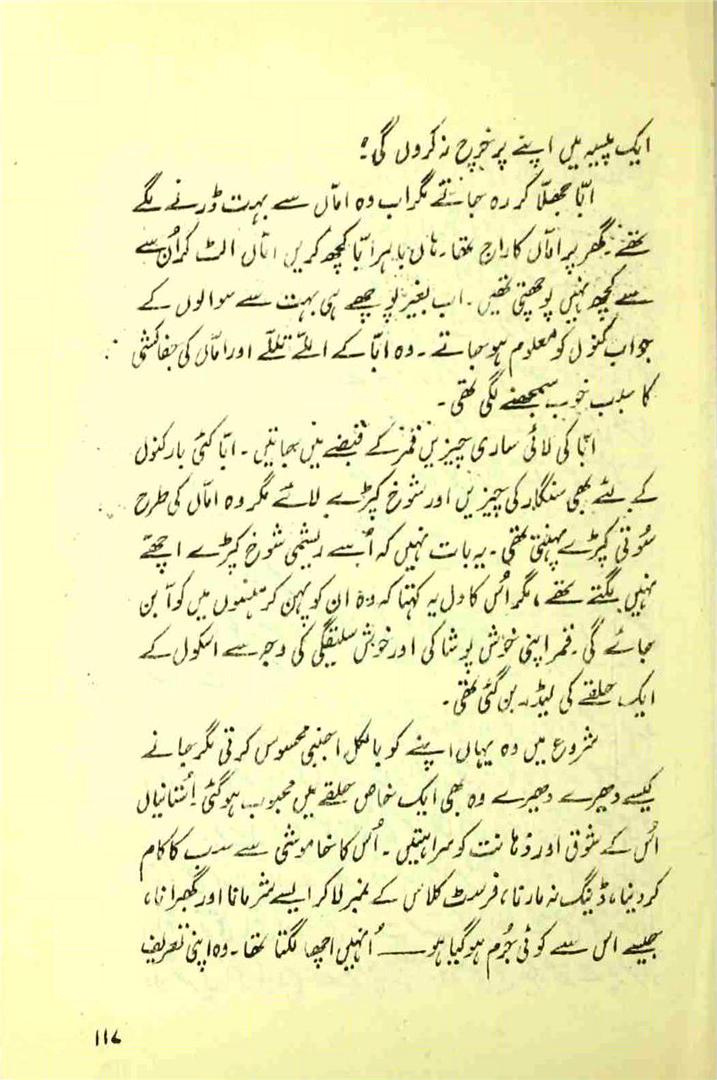 ایک پیسہ میں اپنے پر خرچ نہ کروں گی۔"
ابّا جھلّا کر رہ جاتے مگر اب وہ امّاں سے بہت ڈرنے لگے
تھے۔ گھر پر امّاں کا راج تھا۔ ہاں باہر ابّا کچھ کریں امّاں الٹ کر اُن سے
سے کچھ نہیں پوچھتی تھیں۔ اب بغیر پوچھے ہی بہت سے سوالوں کے
جواب کنول کو معلوم ہو جاتے۔ وہ ابّا کے اللّے تللّے اور امّاں کی جفاکشی
کا سبب خوب سمجھنے لگی تھی۔
ابّا کی لائی ساری چیزیں قمر کے قبضے میں جاتیں۔ ابّا کئی بار کنول
کے لئے بھی سنگار کی چیزیں اور شوخ کپڑے لائے مگر وہ امّاں کی طرح
سُوتی کپڑے پہنتی تھی۔ یہ بات نہیں کہ اُسے ریشمی شوخ کپڑے اچھّے
نہیں لگتے تھے، مگر اُس کا دل یہ کہتا کہ وہ ان کو پہن کر ہنسوں میں کوّا بن
جائے گی۔ قمر اپنی خوش پوشاکی اور خوش سلیقگی کی وجہ سے اسکول کے
ایک حلقے کی لیڈر بن گئی تھی۔
شروع میں وہ یہاں اپنے کو بالکل اجنبی محسوس کرتی مگر جانے
کیسے دھیرے دھیرے وہ بھی ایک خاص حلقے میں محبوب ہوگئی! اُستانیاں
اُس کے شوق اور ذہانت کو سراہتیں۔ اُس کا خاموشی سے سب کا کام
کر دینا، ڈینگ نہ مارنا، فرسٹ کلاس کے نمبر لا کر ایسے شرمانا اور گھبرانا،
جیسے اس سے کوئی جُرم ہو گیا ہو ــــ اُنہیں اچھا لگتا تھا۔ وہ اپنی تعریف
۱۱۷